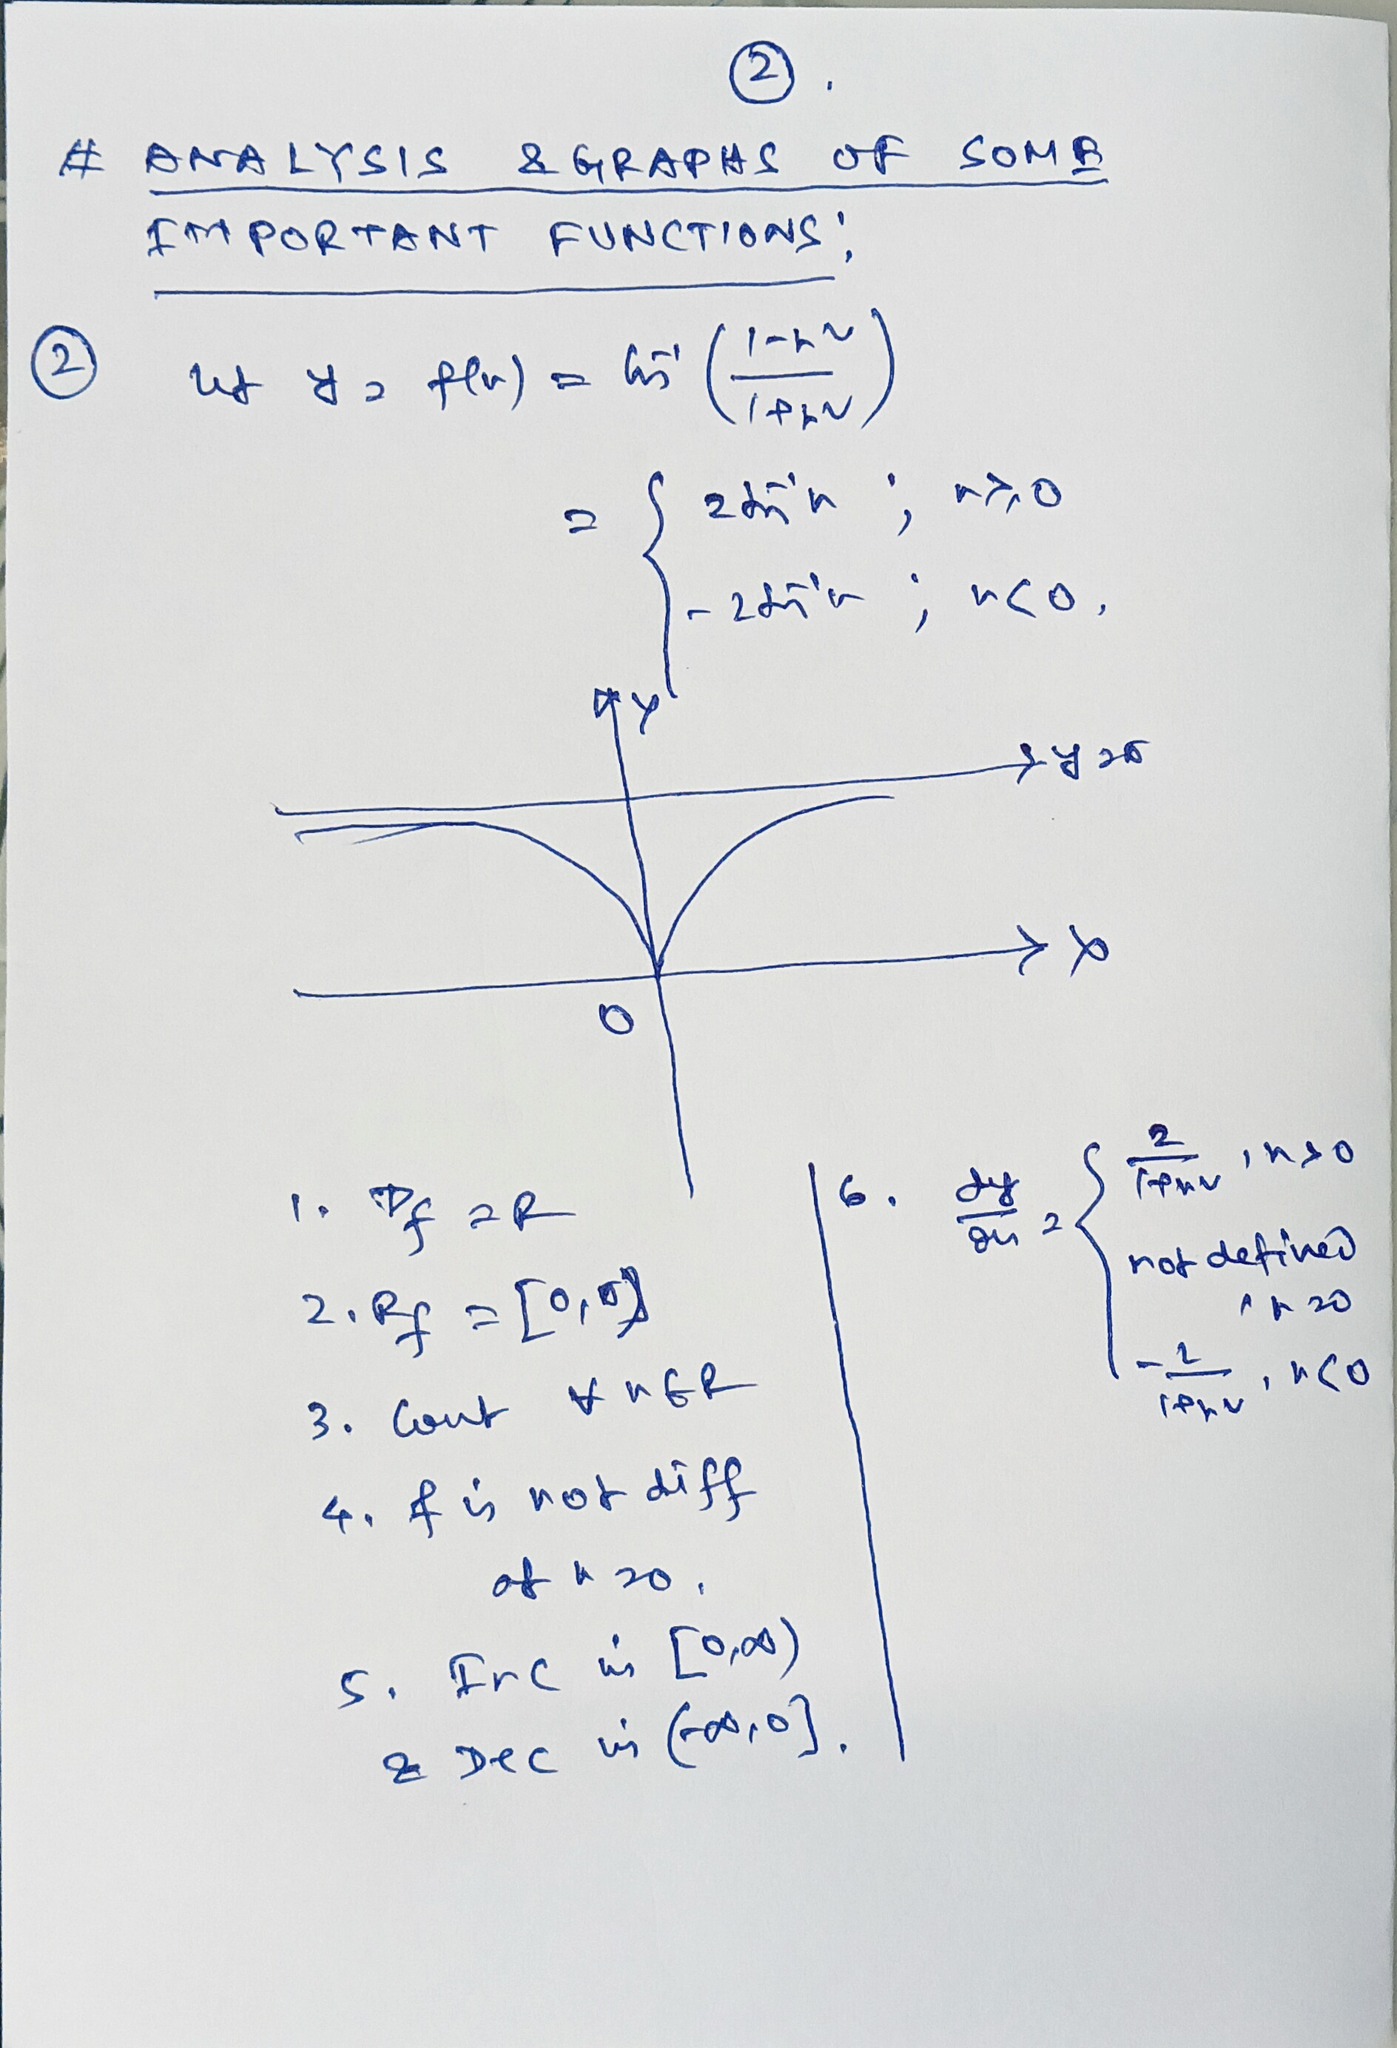 ②.
# ANALYSIS & GRAPHS OF SOME
IMPORTANT FUNCTIONS:
② Let y = f(x) = cos⁻¹ ((1-x²)/(1+x²))
= { 2tan⁻¹x ; x≥0
-2tan⁻¹x ; x<0.
Y
y=π
X
O
1. Df = R
2. Rf = [0,π)
3. Cont ∀ x∈R
4. f is not diff
at x=0.
5. Inc in [0,∞)
& Dec in (-∞,0].
6. dy/dx = { 2/(1+x²), x>0
not defined
, x=0
-2/(1+x²), x<0